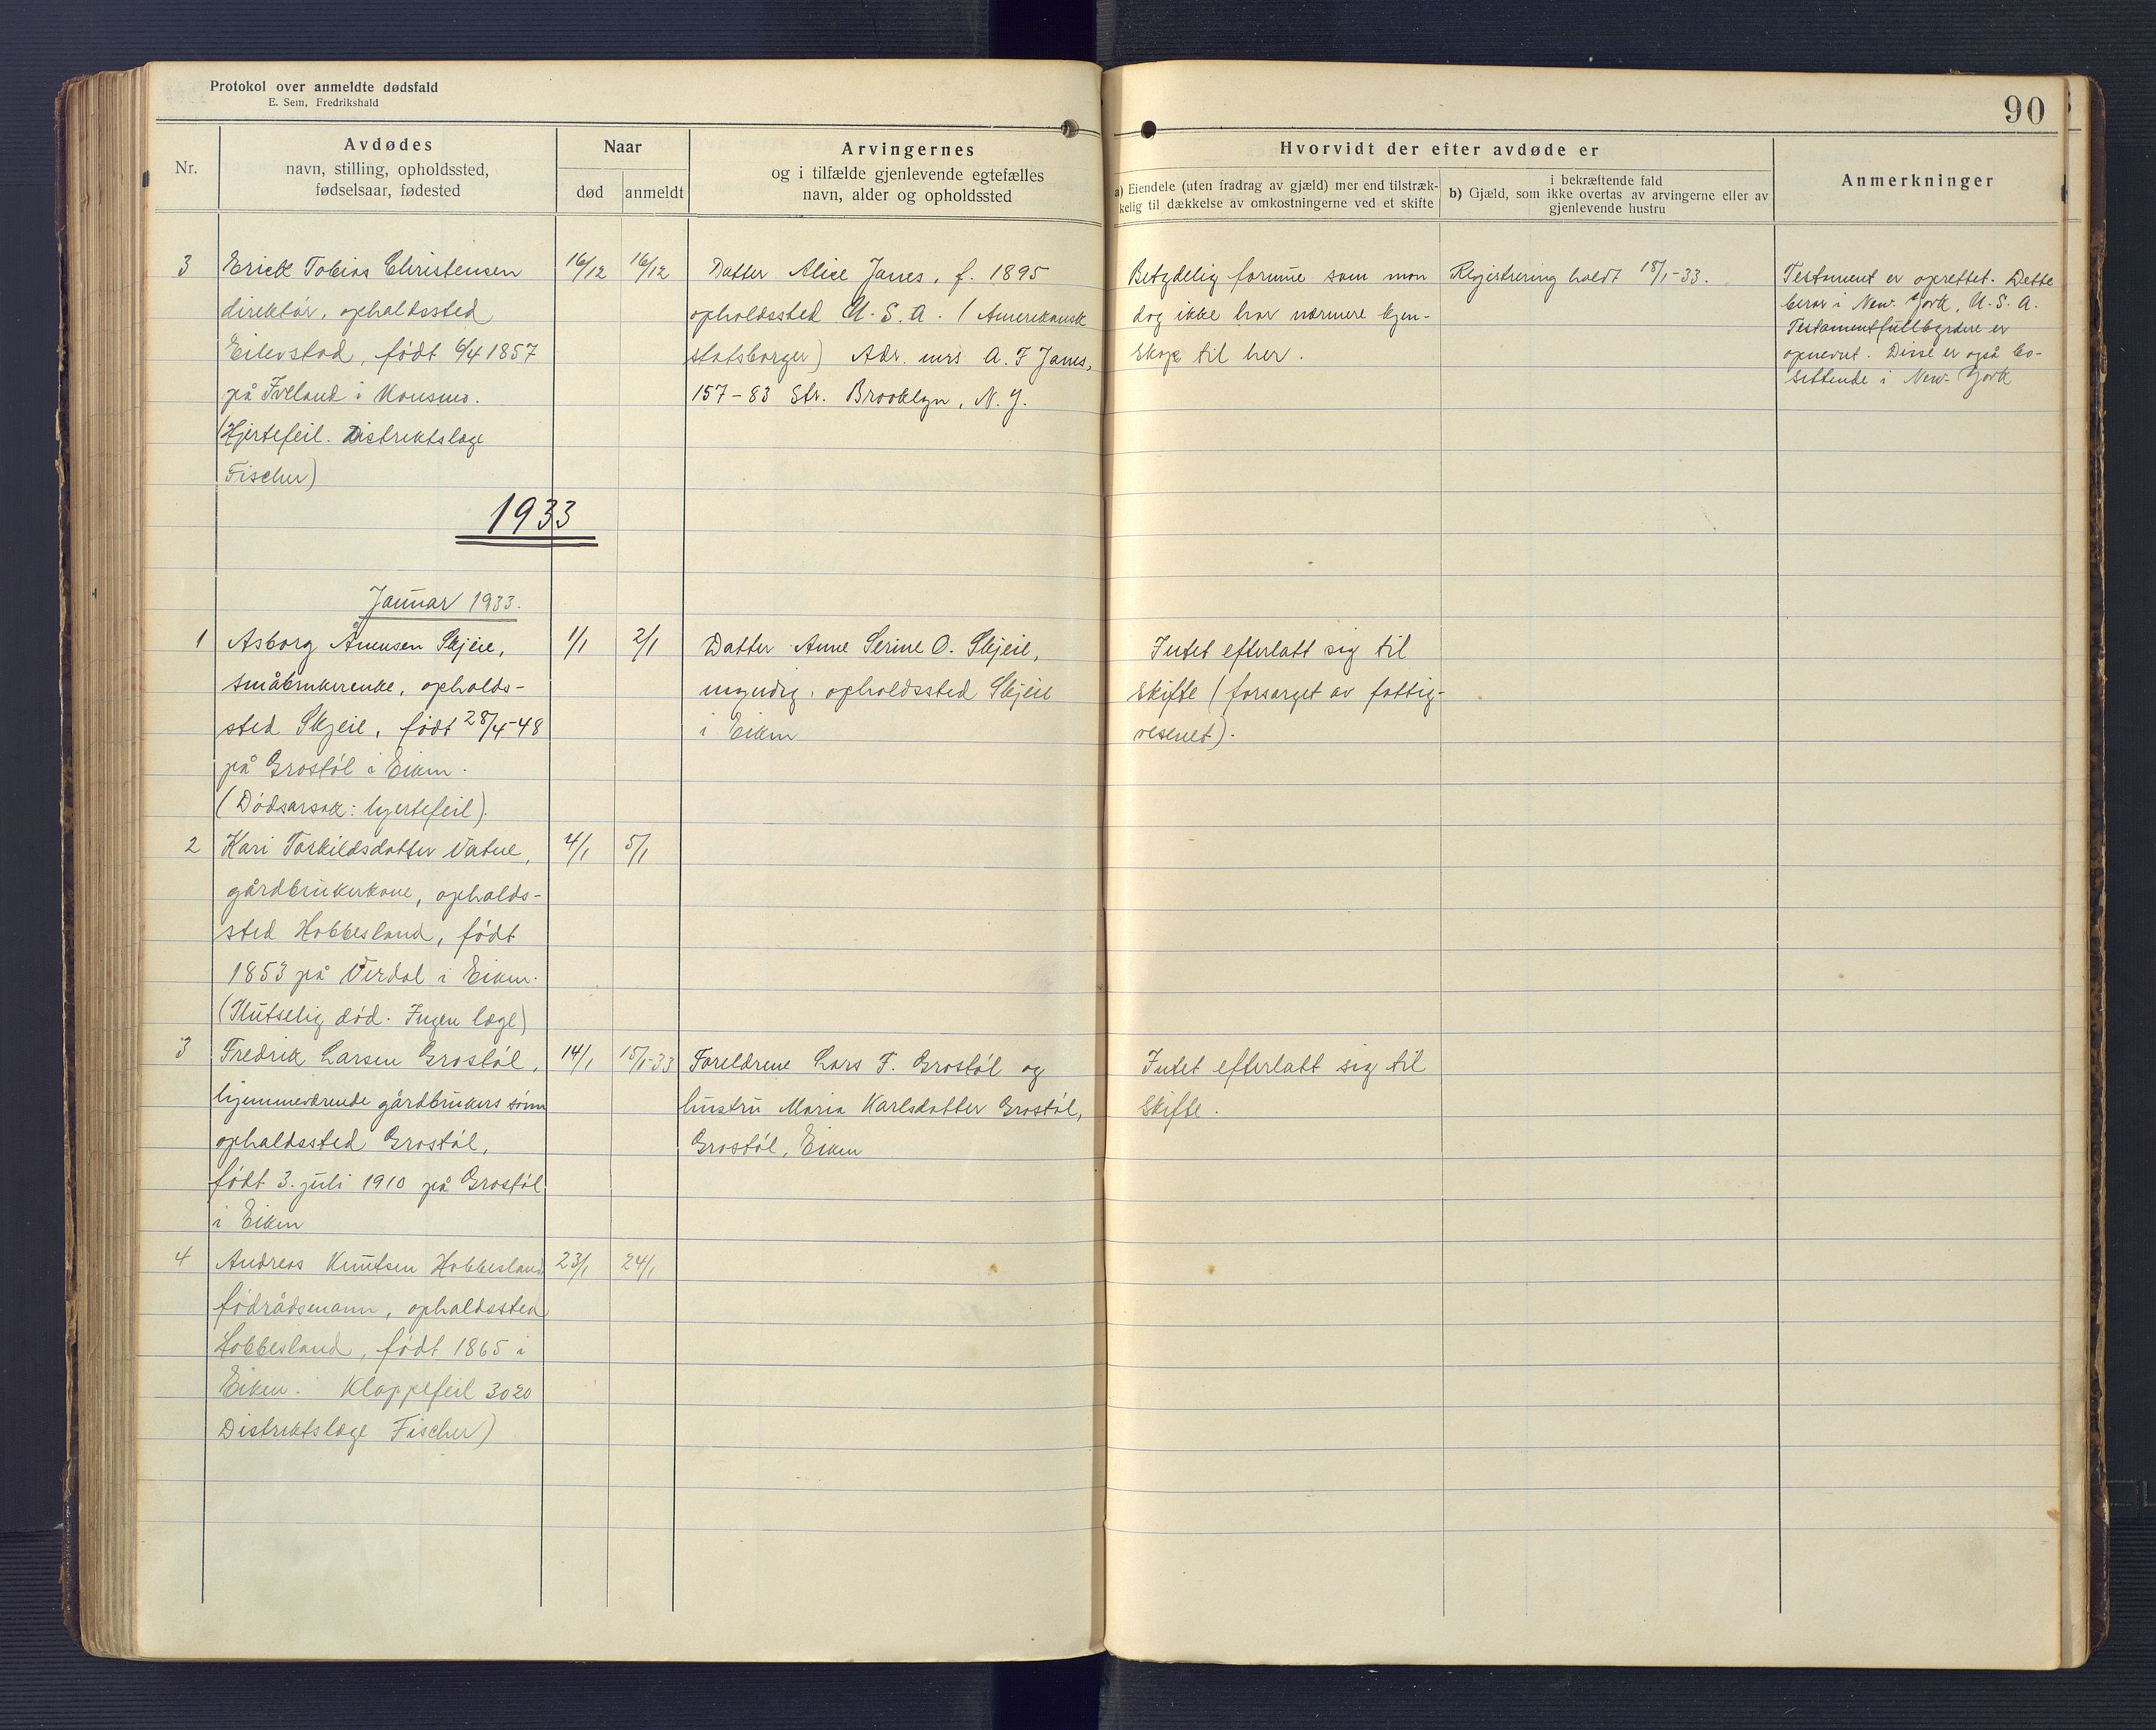 Protokol over anmeldte dødsfald
E. Sem, Fredrikshald
90
Nr.
Avdødes
navn, stilling, opholdssted,
fødselsaar, fødested
Naar
død
anmeldt
Arvingernes
og i tilfælde gjenlevende egtefælles
navn, alder og opholdssted
Hvorvidt der efter avdøde er
a) Eiendele (uten fradrag av gjæld) mer end tilstræk-
kelig til dækkelse av omkostningerne ved et skifte
i bekræftende fald
b) Gjæld, som ikke overtas av arvingerne eller av
gjenlevende hustru
Anmerkninger
3
Erick Tobias Christensen
direktør, opholdssted
Eilevstad, født 6/4 1857
på Iveland i Konsmo.
(Hjertefeil. Distriktslæge
Fischer)
16/12
16/12
Datter Alice Janes, f. 1895
opholdssted U.S.A. (Amerikansk
statsborger) Adr. mrs A. F Janes,
157-83 Str. Brooklyn, N.Y.
Betydelig formue som man
dog ikke har nærmere kjen-
skap til her.
Registrering holdt 18/1-33.
Testament er oprettet. Dette
beror i New-York, U.S.A.
Testamentfullbyrdere er
opnevnt. Disse er også bo-
settende i New-York
1933
Januar 1933.
1
Asborg Ånensen Skjeie,
småbrukerenke, opholds-
sted Skjeie, født 28/4-48
på Grostøl i Eiken.
(Dødsarsak: hjertefeil).
1/1
2/1
Datter Anne Serine O. Skjeie,
myndig, opholdssted Skjeie
i Eiken
Intet efterlatt sig til
skifte (forsørget av fattig-
vesenet).
2
Kari Torkildsdatter Vatne,
gårdbrukerkone, opholds-
sted Hobbesland, født
1853 på Verdal i Eiken.
(Plutselig død. Ingen læge)
4/1
5/1
3
Fredrik Larsen Grostøl,
hjemmeværende gårdbrukers sønn
opholdssted Grostøl,
født 3. juli 1910 på Grostøl
i Eiken
14/1
15/1-33
Foreldrene Lars F. Grostøl og
hustru Maria Karlsdatter Grostøl,
Grostøl, Eiken
Intet efterlatt sig til
skifte.
4
Andreas Knutsen Hobbesland
födrådsmann, opholdssted
Hobbesland, født 1865 i
Eiken. Klappefeil 3020
Distriktslæge Fischer)
23/1
24/1